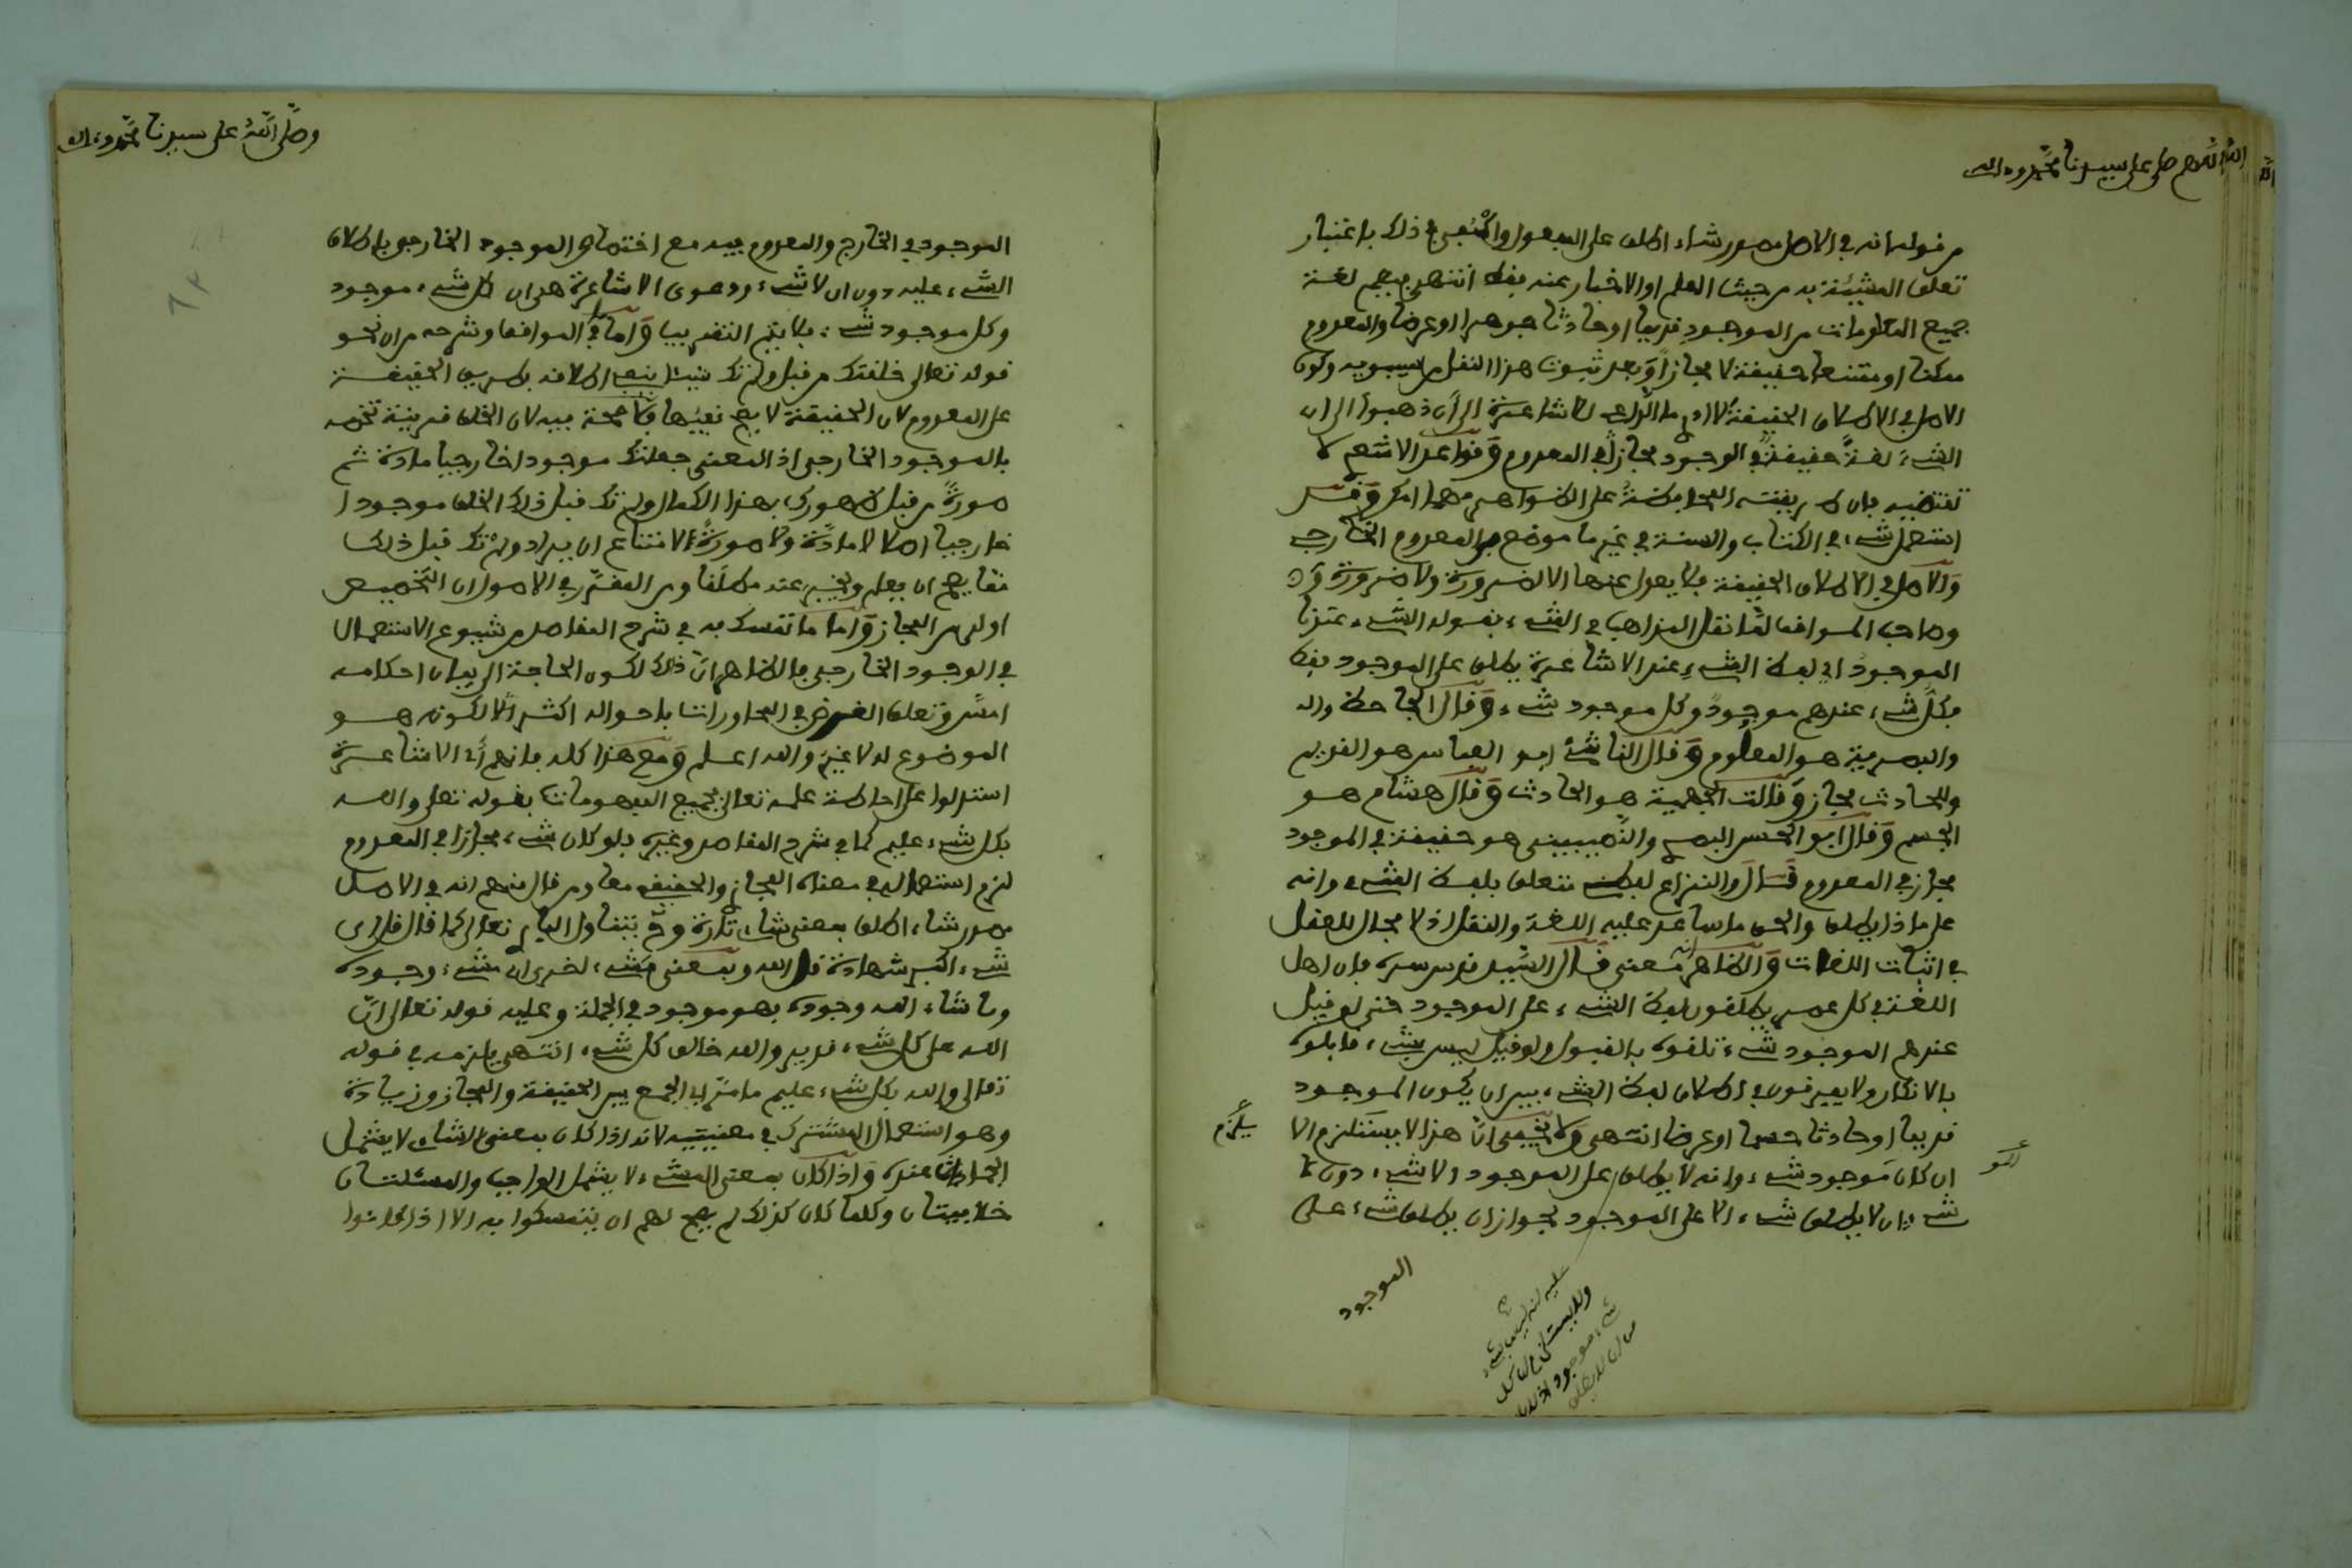 اللهم صل على سيدنا محمد وءاله
من قولها انه في الاصل مصدر شاء اطلق على المفعول واكتفى في ذلك باعتبار
تعلق المشيئة به من حيث العلم او الاخبار عنه فقط انتهى فيعم لغة
جميع المعلومات من الموجود قديما او حادثا جوهرا او عرضا والمعدوم
ممكنا او ممتنعا حقيقة لا مجازا وبعد ثبوت هذا النقل من سيبويه وكون
الاصل في الاطلاق الحقيقة لا ادري ما الداعي للاشاعرة الى أن ذهبوا الى ان
الشيء لغة حقيقة في الوجود مجاز في المعدوم وقواعد الاشعري لا
تقتضيه بان طريقته المحافظة على الظواهر مهما امكن وقد
استعمل شيء في الكتاب والسنة في غير ما موضع في المعدوم الخارجي
والاصل في الاطلاق الحقيقة فلا يعدل عنها الا لضرورة ولا ضرورة
وصاحب المواقف لما نقل المذاهب في الشيء بقوله الشيء عندنا
الموجود اي لفظ الشيء عند الاشاعرة يطلق على الموجود فقط
فكل شيء عندهم موجود وكل موجود شيء وقال الجاحظ
والبصرية هو المعلوم وقال الناشئ ابو العباس هو القديم
وللحادث مجاز وقالت الجهمية هو الحادث وقال هشام هو
الجسم وقال ابو الحسن البصري والنصيبيني هو حقيقة في الموجود
مجاز في المعدوم قال والنزاع لفظي متعلق بلفظ الشيء وانه
على ماذا يطلق والحق ما ساعد عليه اللغة والنقل اذ لا مجال للعقل
في اثبات اللغات والظاهر معنى قال السيد قدس سره فان اهل
اللغة في كل عصر يطلقون لفظ الشيء على الموجود حتى لو قيل
عندهم الموجود شيء تلقوه بالقبول ولو قيل ليس بشيء قابلوه
بالانكار ولا يفرقون في اطلاق لفظ الشيء بين ان يكون الموجود
قديما او حادثا جسما او عرضا انتهى ولا يخفى ان هذا لا يستلزم الا
ان كان موجود شيء وانه لا يطلق على الموجود لا شيء دون
شيء ان لا يطلق شيء الا على الموجود لجواز ان يطلق شيء على
الموجود
وصلى الله على سيدنا محمد وءاله
الموجود في الخارج والمعدوم فيه مع اختصاص الموجود الخارجي باطلاق
الشيء عليه دون ان لا شيء ودعوى الاشاعرة هي ان كل شيء موجود
وكل موجود شيء فلا يتم التقريب واما في المواقف وشرحه من ان نحو
قوله تعالى خلقتك من قبل ولم تك شيئا ينفي اطلاقه بطريق الحقيقة
على المعدوم لان الحقيقة لا يصح نفيها فلا حجة فيه لان الخلق قرينة تخصه
بالموجود الخارجي اذ المعنى جعلتك موجودا خارجيا مادة ثم
صورة من قبل ظهورك بهذا الكمال ولم تك قبل ذلك الخلق موجودا
خارجيا اصلا لا مادة ولا صورة لامتناع ان يراد ولم تك قبل ذلك
مما يصح ان يعلم ويخبر عنه مطلقا ومن المقرر في الاصول ان التخصيص
اولى من المجاز واما ما تمسك به في شرح المقاصد من شيوع الاستعمال
في الوجود الخارجي فالظاهر ان ذلك لكون الحاجة الى بيان احكامه
امس وتعلق الغرض في المحاورات باحواله اكثر لا لكونه هو
الموضوع له لا غير والله اعلم ومع هذا كله فانهم أي الاشاعرة
استدلوا على احاطة علمه تعالى بجميع المفهومات بقوله تعلى والله
بكل شيء عليم كما في شرح المقاصد وغيره فلو كان شيء مجازا في المعدوم
لزم استعماله في معناه المجاز والحقيقي معا ومن قال منهم انه في الاصل
مصدر شاء اطلق بمعنى شاء تارة وح يتناول الباري تعالى كما قال قل اي
شيء اكبر شهادة قل الله وبمعنى مشيء اخرى اي مشيء وجوده
وما شاء الله وجوده فهو موجود في الجملة وعليه قوله تعالى ان
الله على كل شيء قدير والله خالق كل شيء انتهى يلزمه في قوله
تعالى والله بكل شيء عليم ما مر اي الجمع بين الحقيقة والمجاز وزيادة
وهو استعمال المشترك في معنييه لانه اذا كان بمعنى الشاي لا يشمل
الجمادات عنده واذا كان بمعنى المشيء لا يشمل الواجب والمسئلتان
خلافيتان وكلما كان كذلك لم يصح لهم ان يتمسكوا به الا اذا كانوا